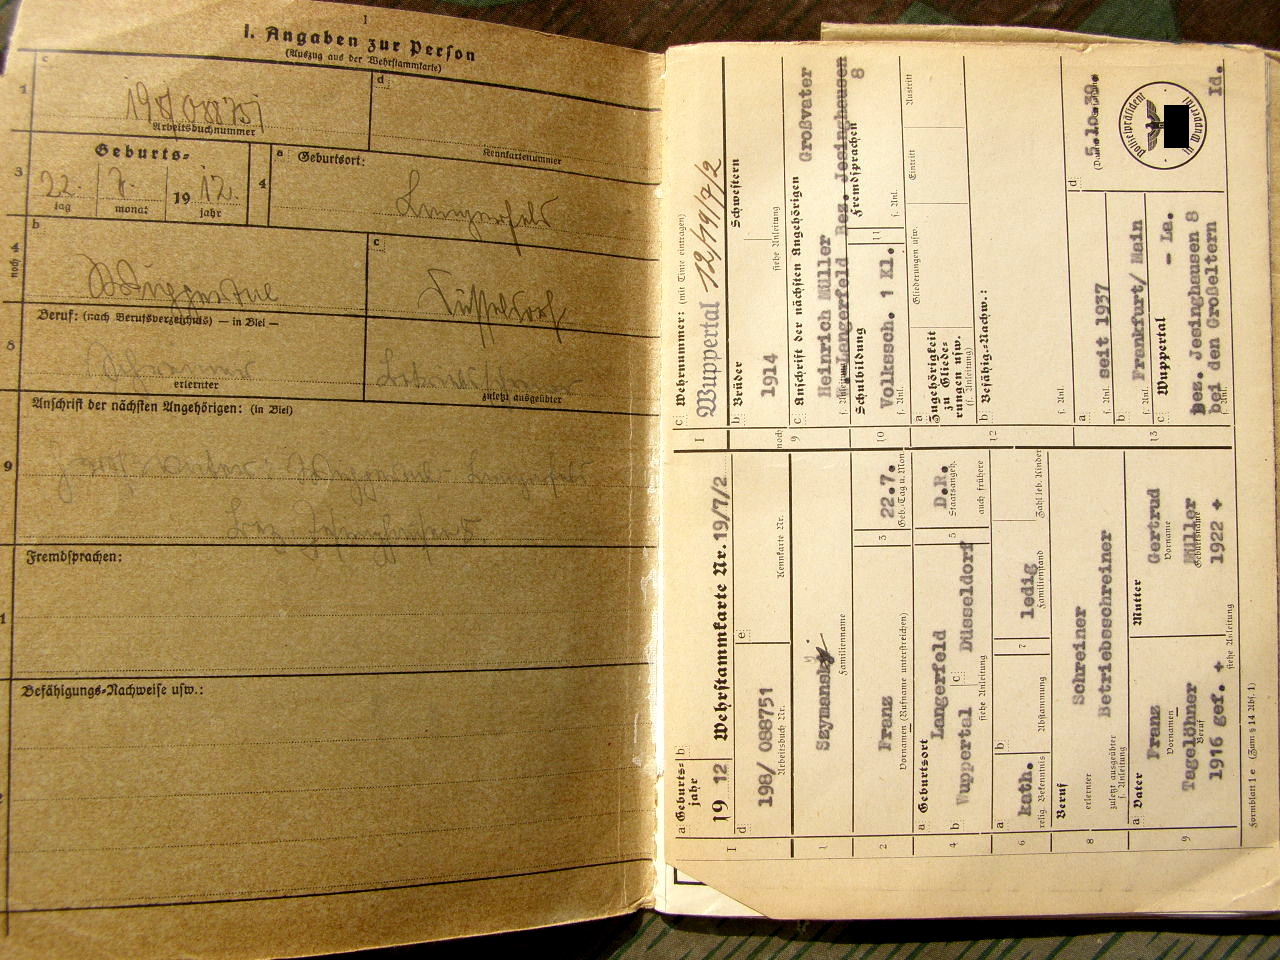 1
I. Angaben zur Person
(Auszug aus der Wehrstammkarte)
c
d
1
198/088751
Arbeitsbuchnummer
Kennkartennummer
Geburts-
3
22. 7. 19 12.
tag monat jahr
4
a Geburtsort:
Langerfeld
noch 4
b
Wuppertal
c
Düsseldorf
Beruf: (nach Berufsverzeichnis) — in Blei —
8
erlernter
zuletzt ausgeübter
Anschrift der nächsten Angehörigen: (in Blei)
9
Wuppertal Langerfeld
Fremdsprachen:
Befähigungs-Nachweise usw.:
a Geburts-
jahr
19 12
b
Wehrstammkarte Nr. 19/7/2
I
d
198/ 088751
Arbeitsbuch Nr.
e
Kennkarte Nr.
1
Szymanski
Familienname
2
Franz
Vornamen (Rufname unterstreichen)
3
22.7.
Geb.-Tag u. Mon.
4
a Geburtsort
Langerfeld
b
Wuppertal
c
Düsseldorf
siehe Anleitung
5
D.R.
Staatsangeh.
auch frühere
6
a
kath.
relig. Bekenntnis
b
Abstammung
7
ledig
Familienstand
Zahl leb. Kinder
8
Beruf
erlernter
Schreiner
zuletzt ausgeübter
f. Anleitung
Betriebsschreiner
9
a Vater
Franz
Vornamen
Tagelöhner
Beruf
1916 gef. +
Mutter
Gertrud
Vorname
Müller
Geburtsname
1922 +
siehe Anleitung
Formblatt 1 e (Zum § 14 Abs. 1)
I
c Wehrnummer: (mit Tinte eintragen)
Wuppertal 12/19/7/2
noch
9
b Brüder
1914
Schwestern
siehe Anleitung
c Anschrift der nächsten Angehörigen Großvater
Heinrich Müller
Langerfeld Bez. Jesinghausen
8
10
Schulbildung
Volkssch. 1 Kl.
f. Anl.
11
Fremdsprachen
f. Anl.
12
a
Zugehörigkeit
zu Gliede-
rungen usw.
(f. Anleitung)
Gliederungen usw.
Eintritt
Austritt
b Befähig.-Nachw.:
f. Anl.
13
a
f. Anl.
seit 1937
b
f. Anl.
Frankfurt/ Main
c Wuppertal - La.
Bez. Jesinghausen 8
bei den Großeltern
d
5.10.39.
Polizeipräsident
in Wuppertal
Id.